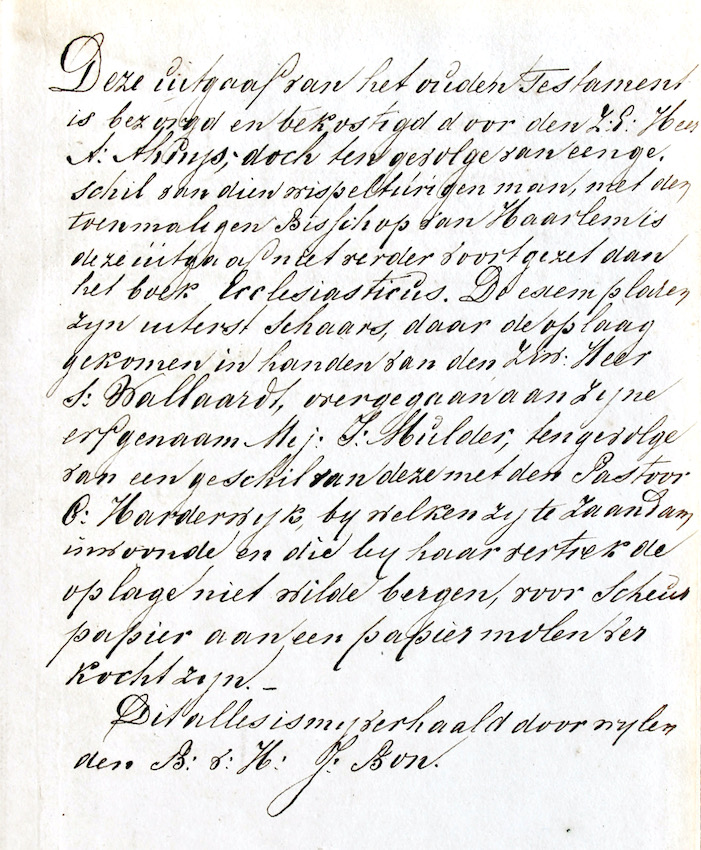 Deze uitgaaf van het ouden Testament
is bezorgd en bekostigd door den Z:E: Heer
A: Ahuys; doch ten gevolge van een ge,
schil van dien wispelturigen man, met den
toenmaligen Bisschop van Haarlem is
deze uitgaaf niet verder voortgezet dan
het boek Ecclesiasticus. De exemplaren
zyn uiterst schaars, daar de oplaag
gekomen in handen van den Z:Ew: Heer
S: Wallaardt, overgegaan aan zyne
erfgenaam Mej: J: Mulder, tengevolge
van een geschil van deze met den Pastoor
C: Harderwyk, by welken zy te Zaandam
inwoonde en die by haar vertrek de
oplage niet wilde bergen, voor Scheur
papier aan een papiermolen ver
kocht zyn._
Dit alles is my verhaald door wylen
den B: v: H: J: Bon.